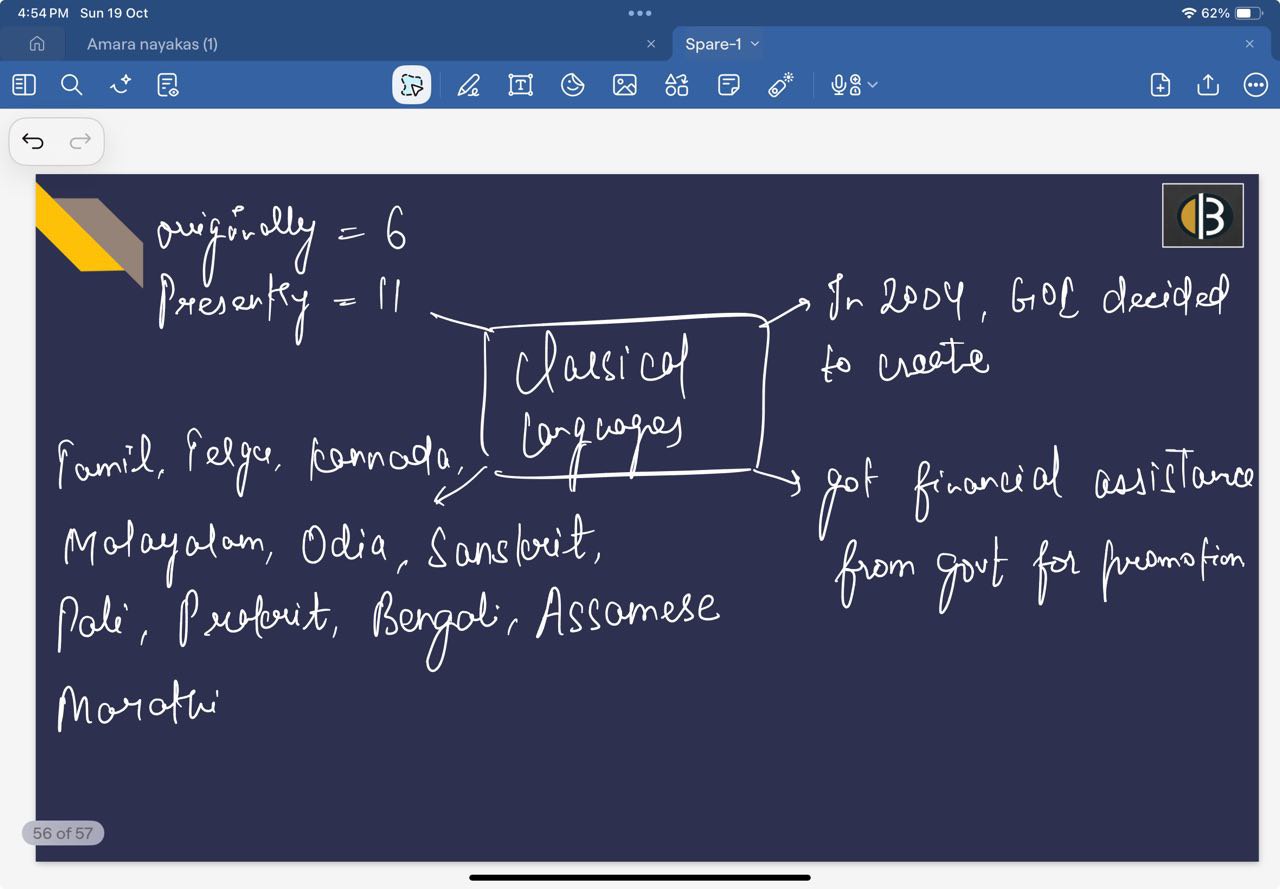 4:54 PM Sun 19 Oct
62%
Amara nayakas (1)
Spare-1
originally = 6
Presently = 11
Classical
languages
In 2004, GOI decided
to create
got financial assistance
from govt for promotion
Tamil, Telgu, Kannada,
Malayalam, Odia, Sanskrit,
Pali, Prakrit, Bengali, Assamese
Marathi
56 of 57